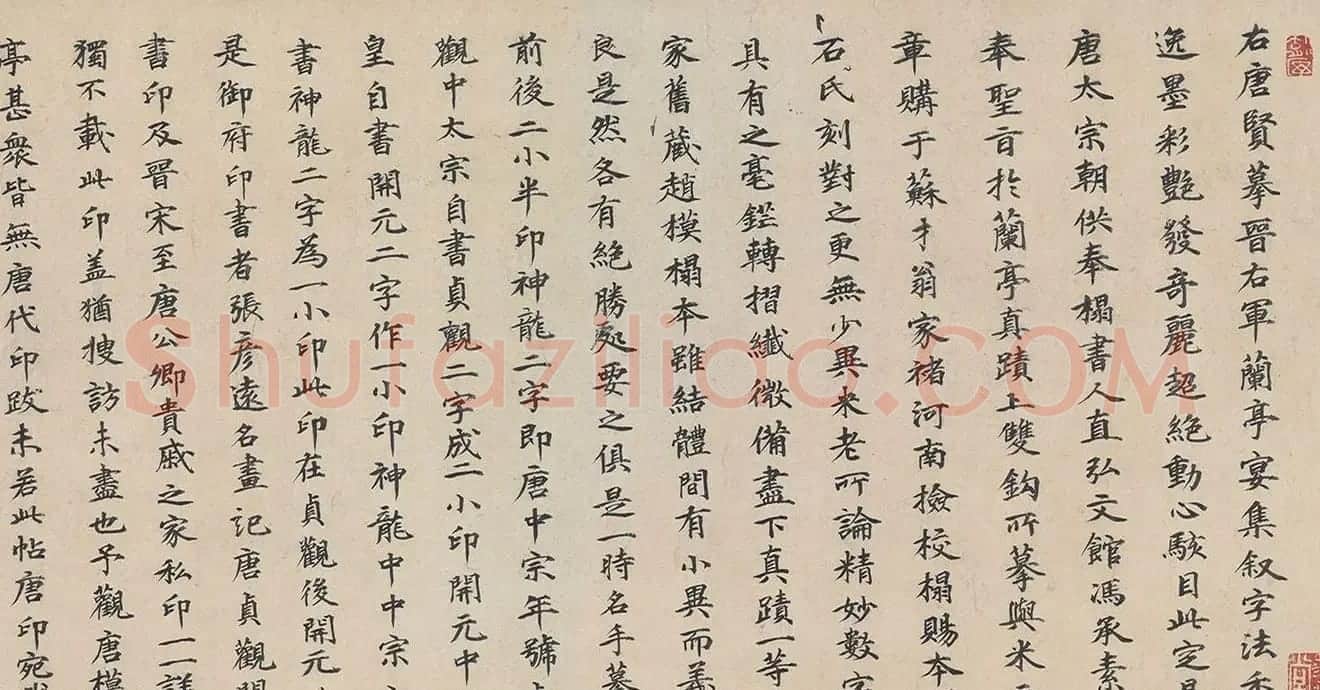 右唐賢摹晉右軍蘭亭宴集叙字法
逸墨彩艶發奇麗超絕動心駭目此定
唐太宗朝供奉榻書人直弘文館馮承素
奉聖旨於蘭亭真蹟上雙鈎所摹與米
章購于蘇才翁家褚河南撿校榻賜本
石氏刻對之更無少異米老所論精妙數字
具有之毫鋩轉摺纖微備盡下真蹟一等
家舊蔵趙模榻本雖結體間有小異而義
良是然各有絕勝处要之俱是一時名手摹
前後二小半印神龍二字即唐中宗年號
觀中太宗自書貞觀二字成二小印開元中
皇自書開元二字作一小印神龍中中宗
書神龍二字為一小印此印在貞觀後開元
是御府印書者張彦遠名畫記唐貞觀開
書印及晉宋至唐公卿貴戚之家私印一一詳
獨不載此印盖猶搜訪未盡也予觀唐模
亭甚衆皆無唐代印跋未若此帖唐印宛
Shufaziliao.COM